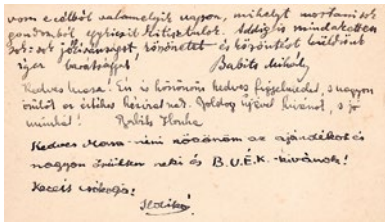 vom ezekből valamelyik napon, mihelyt mostani sok
gondomból egy kicsit kitisztulok. Addig is mindketten
sok-sok jókívánságot, köszönetet és köszöntést küldünk
igaz barátsággal!
Babits Mihály
Kedves Masa! Én is köszönöm kedves figyelmedet, s nagyon
örülök az értékes kéziratnak. Boldog újévet kívánok, s jó
munkát! Babits Ilonka
Kedves Masa-néni köszönöm az ajándékot és
nagyon örültem neki és B.U.É.K.-kívánok!
Kezeit csókolja:
Ildikó